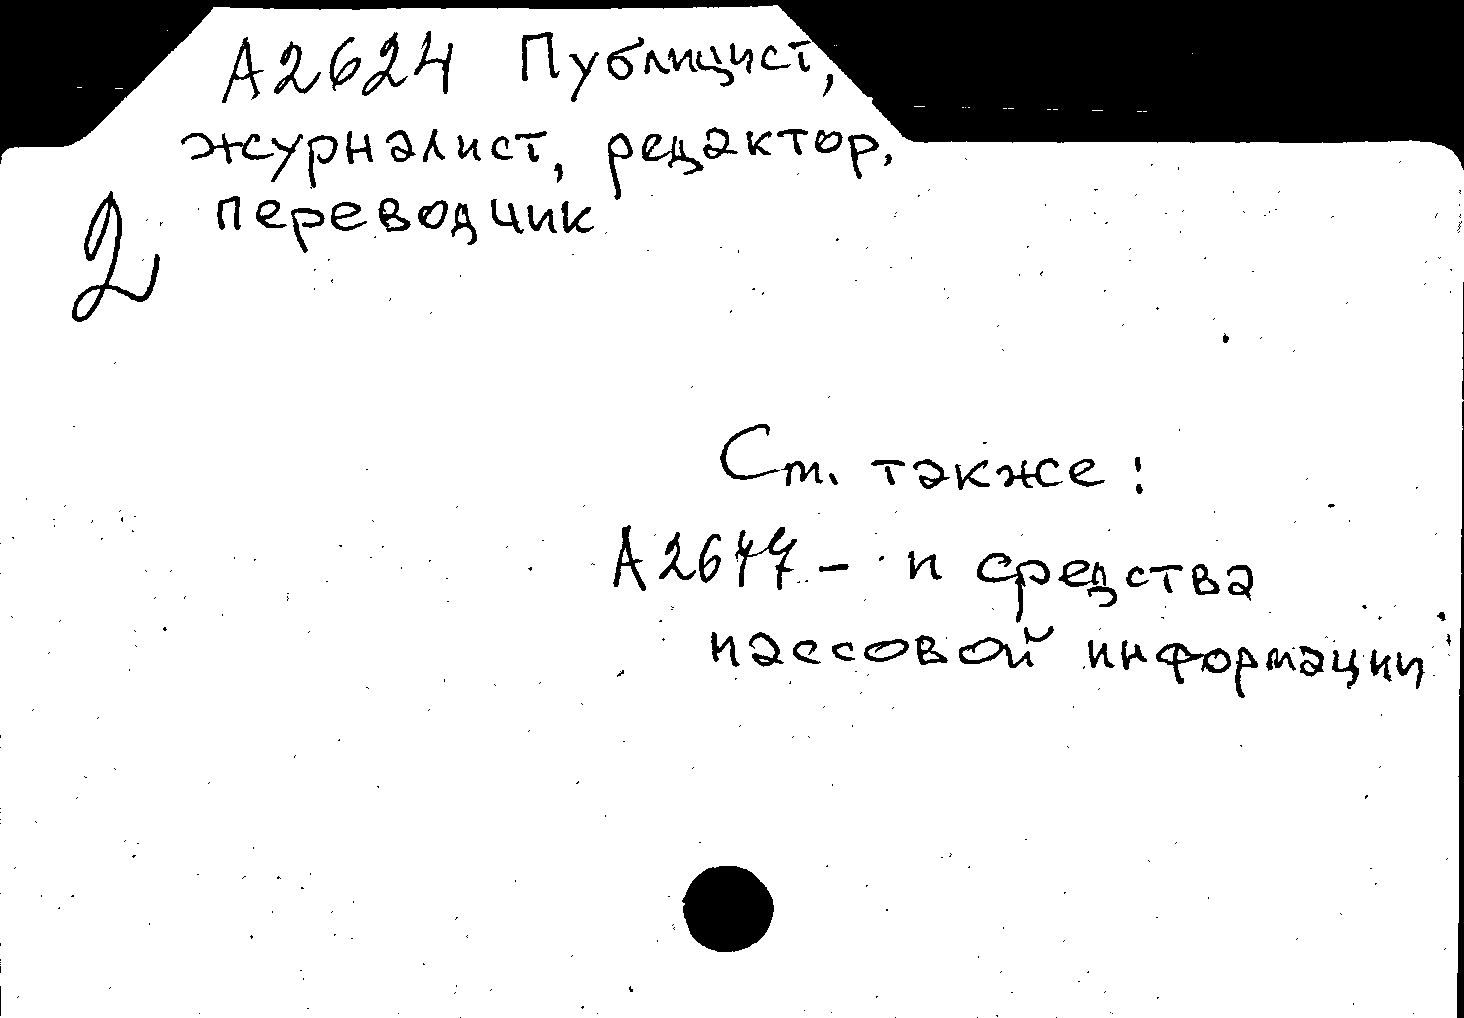 А2624 Публицист,
журналист, редактор,
переводчик
2
См. также:
А2677 – и средства
массовой информации